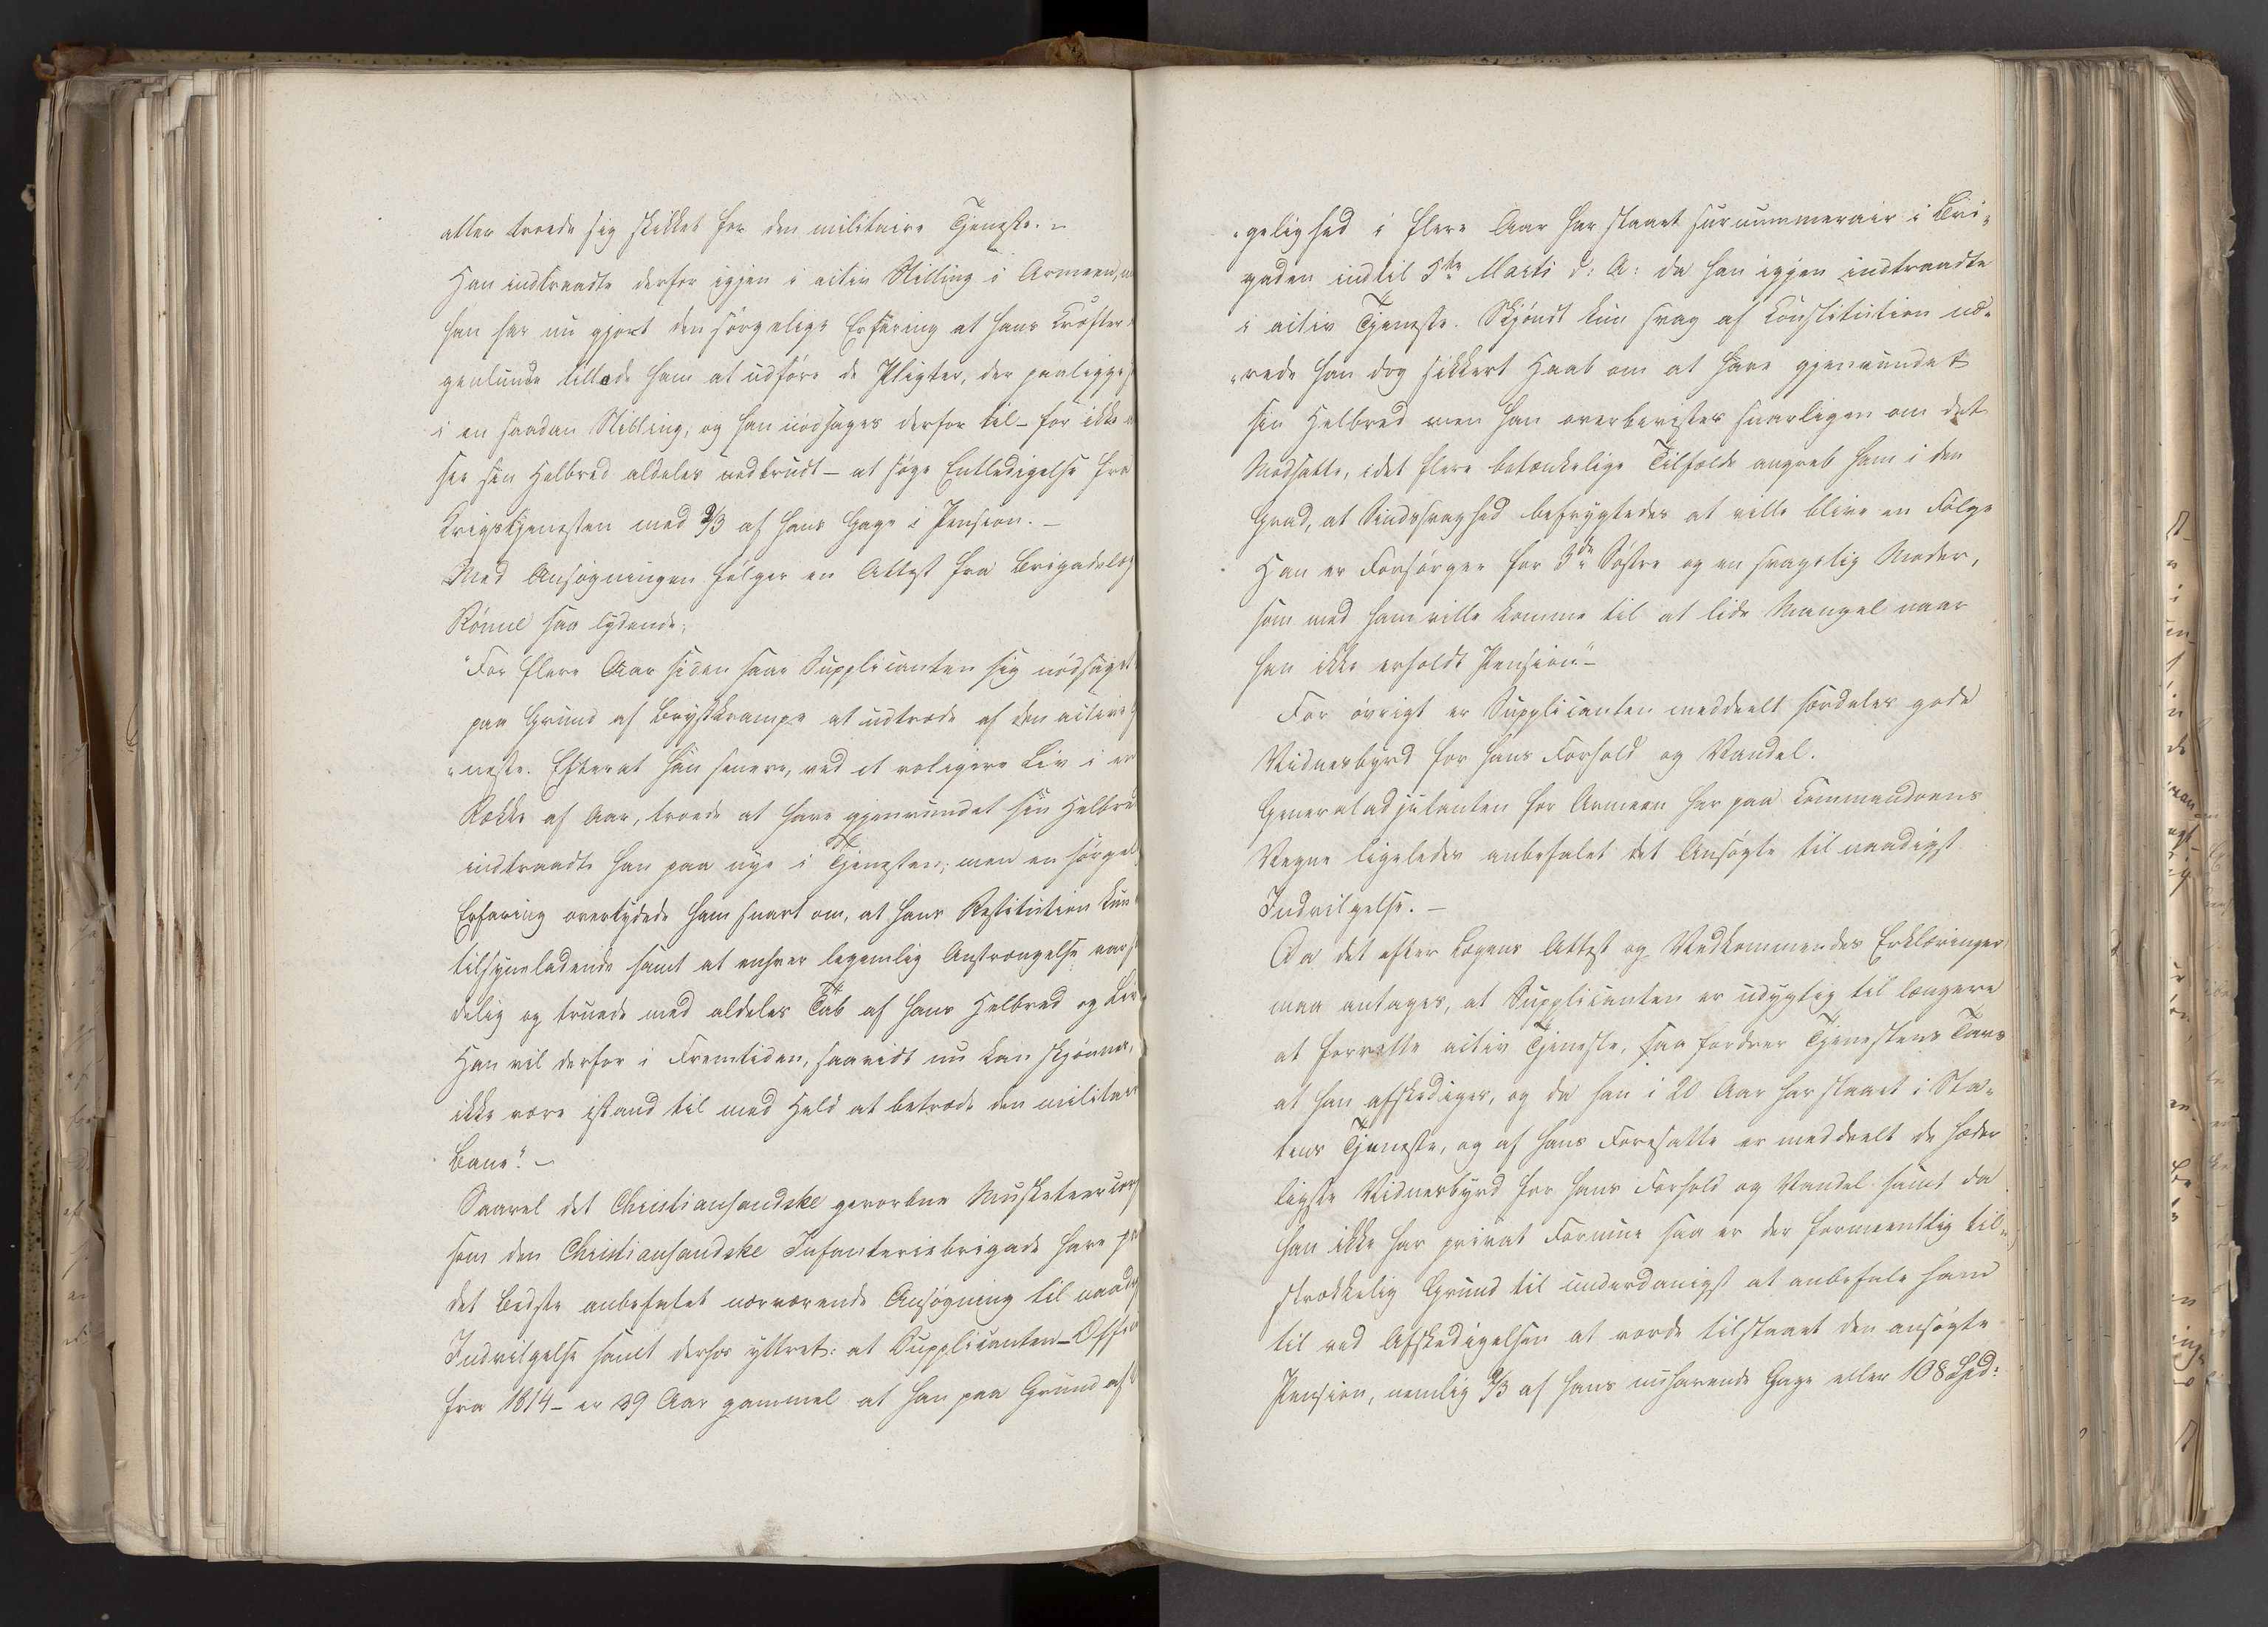 atter troede sig skikket for den militaire Tjeneste. –
Han indtraadte derfor igjen i activ Stilling i Armeen,
han har nu gjort den sørgelige Erfaring at hans Kræfter
genlunde tillade ham at udføre de Pligter, der paaligge
i en saadan Stilling, og han nødsages derfor til – for ikke
see sin Helbred aldeles nedbrudt – at søge Entledigelse fra
Krigstjenesten med 2/3 af hans Gage i Pension. –
Med Ansøgningen følger en Attest fra Brigadelæg
Rønne saa lydende;
"For flere Aar siden saae Supplicanten sig nødsaget
paa Grund af Brystkrampe at udtræde af den active
"neste. Efterat han senere, ved et roligere Liv i en
Række af Aar, troede at have gjenvundet sin Helbred
indtraadte han paa nye i Tjenesten; men en sørgel
Erfaring overtydede ham snart om, at hans Restitution kun
tilsyneladende samt at enhver legemlig Anstrængelse var
delig og truede med aldeles Tab af hans Helbred og Liv
Han vil derfor i Fremtiden, saavidt nu kan skjønnes,
ikke være istand til med Held at betræde den militair
Bane". –
Saavel det Christiansandske gevorbne Musketeercorps
som den Christiansandske Infanteriebrigade have paa
det Bedste anbefalet nærværende Ansøgning til naadigst
Indvilgelse samt derhos yttret: at Supplicanten – Offic
fra 1814 – er 39 Aar gammel at han paa Grund af
"gelighed i flere Aar har staaet surnummerair i Bri„
gaden indtil 5te Marts d: A: da han igjen indtraadte
i activ Tjeneste. Skjøndt kun svag af Constitution næ„
"rede han dog sikkert Haab om at have gjenvundet
sin Helbred men han overbevistes snarligen om det
Modsatte, idet flere betænkelige Tilfælde angreb ham i den
Grad, at Sindssvaghed befrygtedes at ville blive en Følge
Han er Forsørger for 3de Søstre og en svagelig Moder,
som med ham ville komme til at lide Mangel naar
han ikke erholdt Pension" –
For øvrigt er Supplicanten meddeelt særdeles gode
Vidnesbyrd for hans Forhold og Vandel.
Generaladjutanten for Armeen har paa Commandoens
Vegne ligeledes anbefalet det Ansøgte til naadigst
Indvilgelse. –
Da det efter Lægens Attest og Vedkommendes Erklæringer
maa antages, at Supplicanten er udygtig til længere
at forrette activ Tjeneste, saa fordrer Tjenestens Tarv
at han afskediges, og da han i 20 Aar har staaet i Sta„
tens Tjeneste, og af hans Foresatte er meddeelt de hæder
ligste Vidnesbyrd for hans Forhold og Vandel samt da
han ikke har privat Formue saa er der formeentlig til„
strækkelig Grund til underdanigst at anbefale ham
til ved Afskedigelsen at vorde tilstaaet den ansøgte
Pension, nemlig 2/3 af hans nuhavende Gage eller 108 Spd: